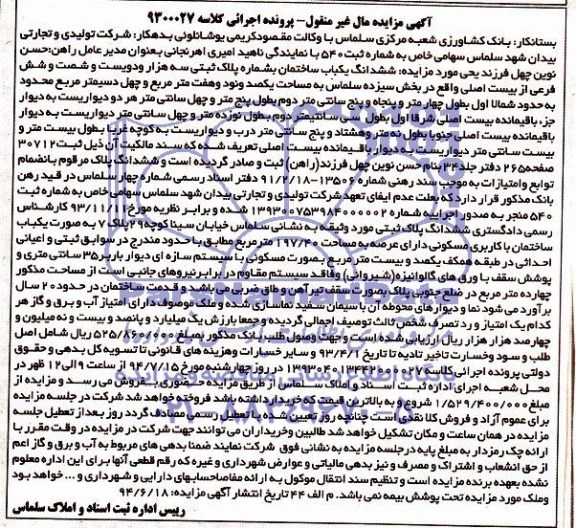 آگهی مزایده مال غیر منقول- پرونده اجرائی کلاسه ۹۳۰۰۰۲۷
بستانکار: بانک کشاورزی شعبه مرکزی سلماس با وکالت مقصودکریمی یوشانلوئی بدهکار: شرکت تولیدی و تجارتی
بیدان شهد سلماس سهامی خاص به شماره ثبت ۵۴۰ با نمایندگی ناهید امیری اهرنجانی بعنوان مدیر عامل راهن:حسن
نوین چهل فرزند یحیی مورد مزایده: ششدانگ یکباب ساختمان بشماره پلاک ثبتی سه هزار ودویست و شصت و شش
فرعی از بیست اصلی واقع در بخش سیزده سلماس به مساحت یکصد ونود وهفت متر مربع و چهل دسیمتر مربع محدود
به حدود شمالا اول بطول چهار متر و پنجاه و پنج سانتی متر دوم بطول پنج متر و چهل سانتی متر هر دو دیواریست به دیوار
جزء باقیمانده بیست اصلی شرقا اول بطول سانتیمتر دوم بطول نوزده متر و چهل سانتی متر دیواریست به دیوار
باقیمانده بیست اصلی جنوبا بطول نه متر وهشتاد و پنج سانتی متر درب و دیواریست به کوچه غربا بطول بیست متر و
بیست سانتی متر دیواریست به دیوار باقیمانده بیست اصلی تعریف شده که سند مالکیت آن ذیل ثبت ۳۰۷۱۲
صفحه ۲۶۵ دفتر جلد ۳۴ بنام حسن نوین چهل فرزند(راهن) ثبت و صادر گردیده است و ششدانگ پلاک مرقوم بانضمام
توابع وامتیازات به موجب سند رهنی شماره ۱۳۵۰۶۰-۹۱/۲/۱۸ دفتر اسناد رسمی شماره چهار سلماس در قید رهن
بانک مذکور قرار دارد که بعلت عدم ایفای تعهد شرکت تولیدی و تجارتی بیدان شهد سلماس سهامی خاص به شماره ثبت
۵۴۰ منجر به صدور اجراییه شماره ۱۳۹۳۰۰۷۵۳۹۸۴۰۰۰۰۰۲ شده و برابر نظریه مورخ ۹۳/۱۱/۱۱ کارشناس
رسمی دادگستری ششدانگ پلاک ثبتی مورد وثیقه به نشانی سلماس خیابان سینا کوچه ۲۹ پلاک ۷ به صورت یکباب
ساختمان با کاربری مسکونی دارای عرصه به مساحت ۱۹۷/۴۰ مترمربع مطابق با حدود مندرج در سوابق ثبتی و اعیانی
احداثی در طبقه همکف یکصد و بیست متر مربع بصورت مسکونی با سیستم سازه ای دیوار باربر ۳۵ سانتی متری و
پوشش سقف با ورق های گالوانیزه(شیروانی) وفاقد سیستم مقاوم در برابر نیروهای جانبی است از مساحت مذکور
چهارده متر مربع در ضلع جنوبی پلاک بصورت سقف تیرآهن و طاق ضربی می باشد و قدمت ساختمان در حدود ۲۰ سال
برآورد می شود نما و دیوارهای محوطه آن با سیمان سفید نماسازی شده و ملک موصوف دارای امتیاز آب و برق و گاز هر
کدام یک امتیاز و رد تصرف شخص ثالث توصیف اجمالی گردیده و جمعا بارزش یک میلیارد و پانصد و بیست و نه میلیون و
چهارصد هزار هزار ریال ارزیابی شده است و جهت وصول طلب بانک مذکور بمبلغ ۵۲۵/۸۶۰/۰۰۰ ریال شامل اصل
طلب و سود وخسارت تاخیر تادیه تا تاریخ ۹۳/۴/۸ و سایر خسارات وهزینه های قانونی تا تسویه کل بدهی و حقوق
دولتی پرونده اجرائی کلاسه در روز چهارشنبه مورخ ۹۴/۷/۱۵ از ساعت ۹ الی ۱۲ ظهر در
محل شعبه اجرای اداره ثبت اسناد و املاک سلماس از طریق مزایده حضوری بفروش می رسد و مزایده از
مبلغ ۱/۵۲۹/۴۰۰/۰۰۰ شروع و به بالاترین قیمت که خریدار داشته باشد فروخته خواهد شد شرکت در جلسه مزایده
برای عموم آزاد و فروش کلا نقدی است چنانچه روز تعیین شده با تعطیل رسمی مصادف گردد روز بعد از تعطیل جلسه
مزایده در همان ساعت و مکان تشکیل خواهد شد طالبین وخریداران می توانند جهت شرکت در مزایده در وقت مقرر با
ارائه چک رمزدار به مبلغ پایه در جلسه مزایده به نشانی فوق شرکت نمایند ضمنا بدهی های مربوط به آب و برق و گاز اعم
از حق انشعاب و اشتراک و مصرف و نیز بدهی مالیاتی و عوارض شهرداری و غیره که رقم قطعی آنها برای این اداره معلوم
نشده بعهده برنده مزایده است و تنظیم سند انتقال موکول به ارائه مفاصاحسابهای دارایی و شهرداری و ... خواهد بود
وملک مورد مزایده تحت پوشش بیمه نمی باشد. م الف ۴۴ تاریخ انتشار آگهی مزایده: ۹۴/۶/۱۸
رییس اداره ثبت اسناد و املاک سلماس